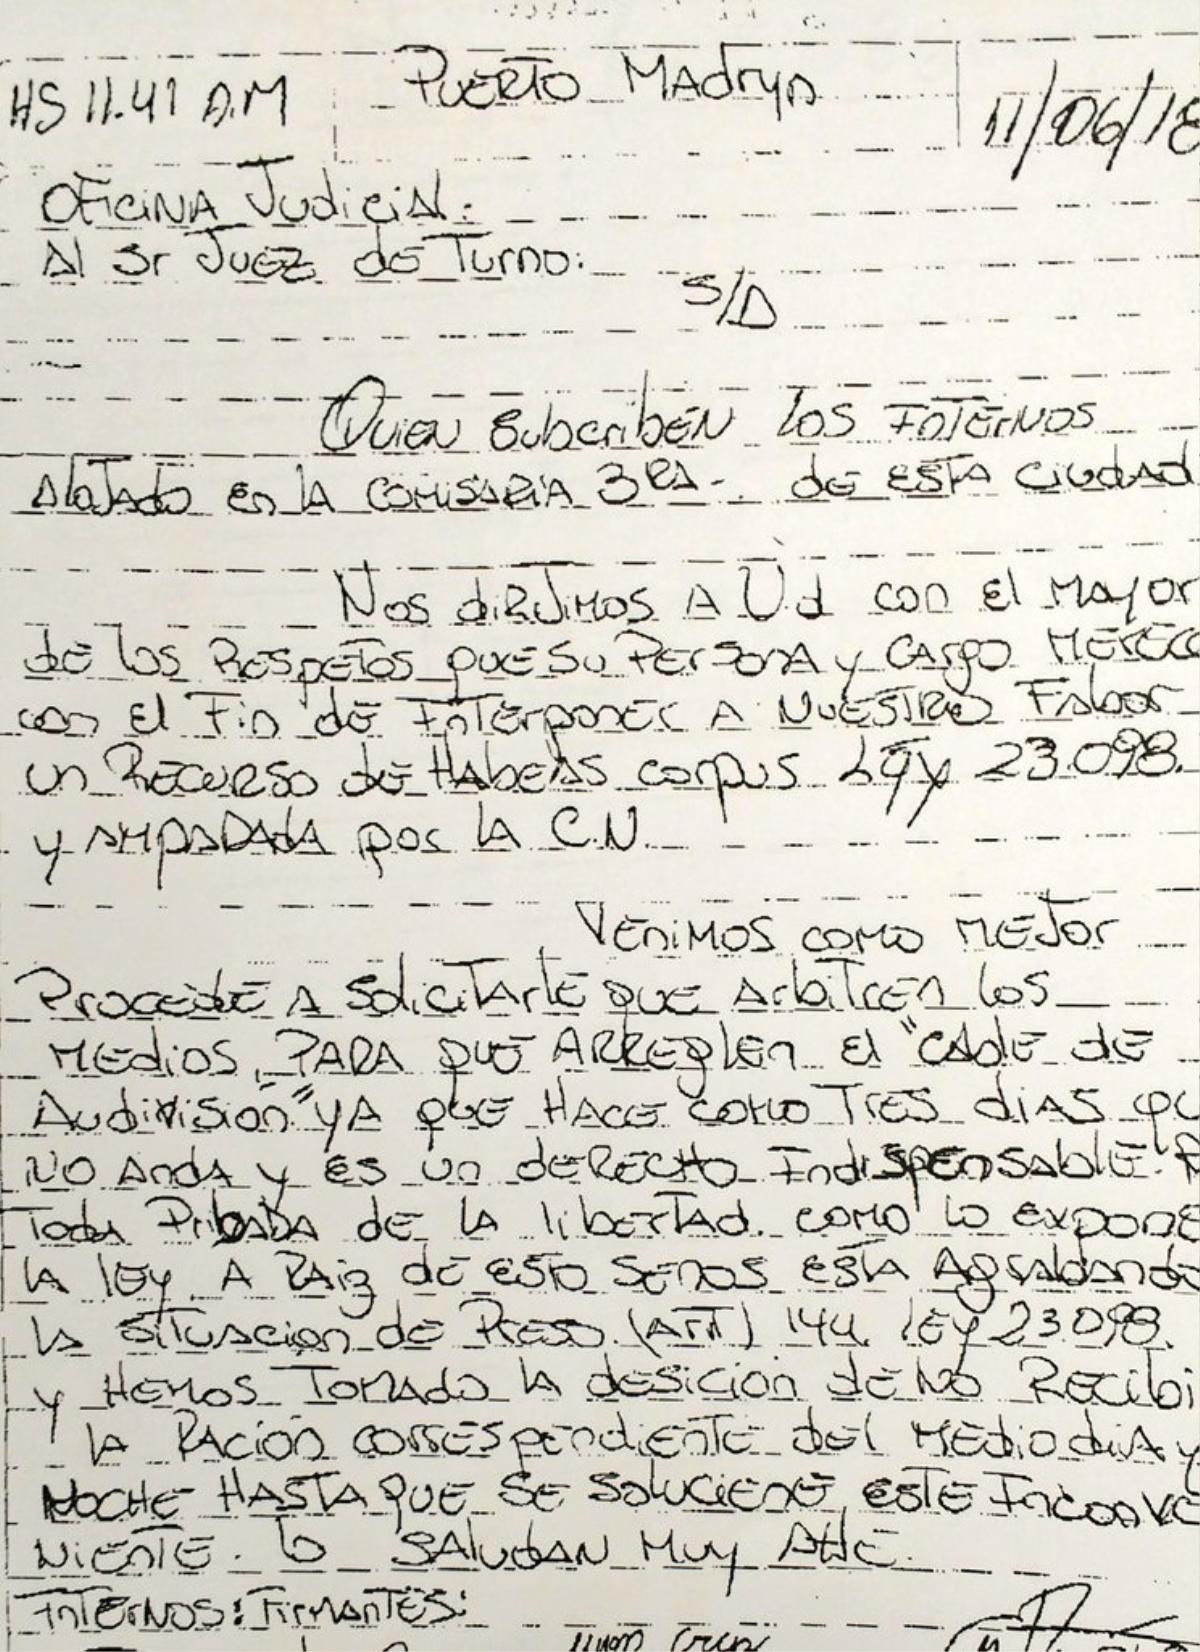 HS 11.41 A.M Puerto Madryn 11/06/18
Oficina Judicial:
Al Sr Juez de Turno:
S/D
Quien Subscriben los Internos
Alojado en la Comisaria 3RA-. de esta Ciudad
Nos dirJimos A Ud con el Mayor
de los Respetos que su Persona y Cargo Merece
con el Fin de Interponer A Nuestro Fabor
un Recurso de Habeas corpus Ley 23.098.
y AMpaRada por la C.N.
Venimos como Mejor
Procede A Solicitarle que Arbitren los
Medios, Para que Arreglen el "Cable de
Audivision" ya que Hace como Tres dias qu
No Anda y es un derecho Indispensable.
Toda Pribada de la libertad. como lo expone
la ley A Raiz de esto se nos esta Agrabando
la situacion de Preso. (Art) 144. ley 23.098.
y Hemos Tomado la desicion de No Recibi
la Racion correspendiente del Medio dia y
Noche Hasta que se soluciene este Inconve
niente. lo Saludan Muy Atte.
Internos: Firmantes: